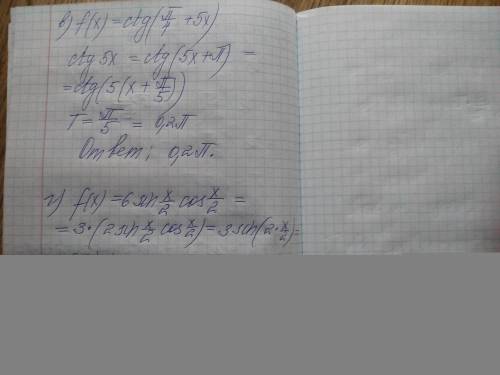 в) f(x) = ctg(π/4 + 5x)
ctg 5x = ctg(5x + π) =
= ctg(5(x + π/5))
T = π/5 = 0,2π
Ответ: 0,2π.
г) f(x) = 6 sin x/2 cos x/2 =
= 3·(2 sin x/2 cos x/2) = 3 sin(2·x/2) =